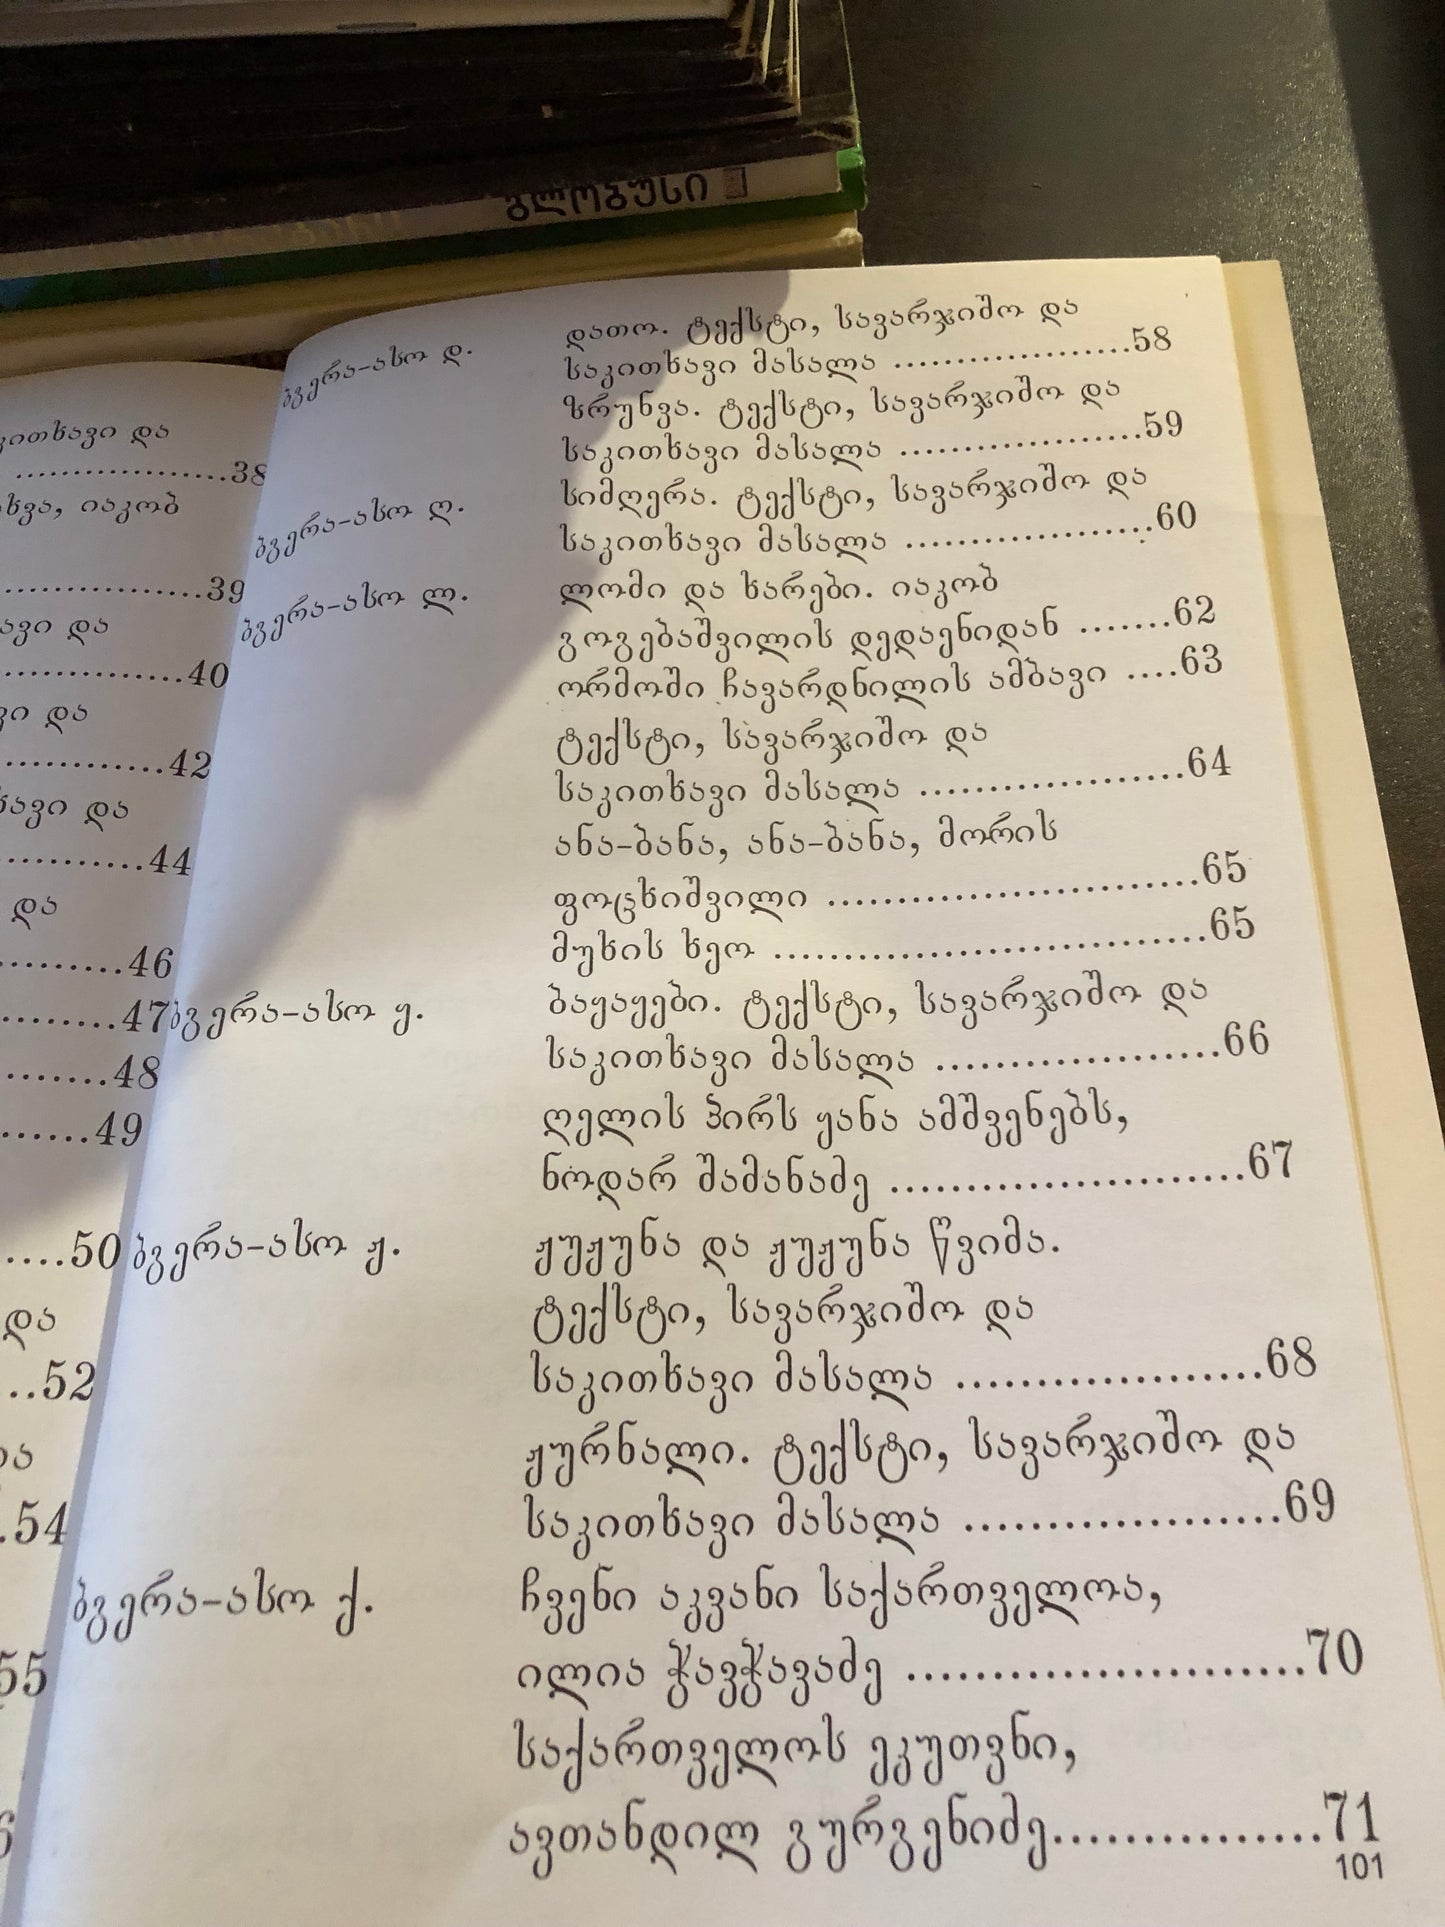 გლობუსი
კითხავი და
..................38
ხვა, იაკობ
..................39
ავი და
................40
ვი და
..............42
ხავი და
............44
და
..........46
.........47
........48
.......49
....50
და
..52
და
.54
55
ბგერა-ასო დ.
დათო. ტექსტი, სავარჯიშო და
საკითხავი მასალა ....................58
ზრუნვა. ტექსტი, სავარჯიშო და
საკითხავი მასალა ....................59
ბგერა-ასო ღ.
სიმღერა. ტექსტი, სავარჯიშო და
საკითხავი მასალა .....................60
ბგერა-ასო ლ.
ლომი და ხარები. იაკობ
გოგებაშვილის დედაენიდან .......62
ორმოში ჩავარდნილის ამბავი ....63
ტექსტი, სავარჯიშო და
საკითხავი მასალა ....................64
ანა-ბანა, ანა-ბანა, მორის
ფოცხიშვილი ...........................65
მუხის ხეო ................................65
ბგერა-ასო ყ.
ბაყაყები. ტექსტი, სავარჯიშო და
საკითხავი მასალა ....................66
ღელის პირს ყანა ამშვენებს,
ნოდარ შამანაძე ........................67
ბგერა-ასო ჟ.
ჟუჟუნა და ჟუჟუნა წვიმა.
ტექსტი, სავარჯიშო და
საკითხავი მასალა ....................68
ჟურნალი. ტექსტი, სავარჯიშო და
საკითხავი მასალა ....................69
ბგერა-ასო ქ.
ჩვენი აკვანი საქართველოა,
ილია ჭავჭავაძე .........................70
საქართველოს ეკუთვნი,
ავთანდილ გურგენიძე................71
101